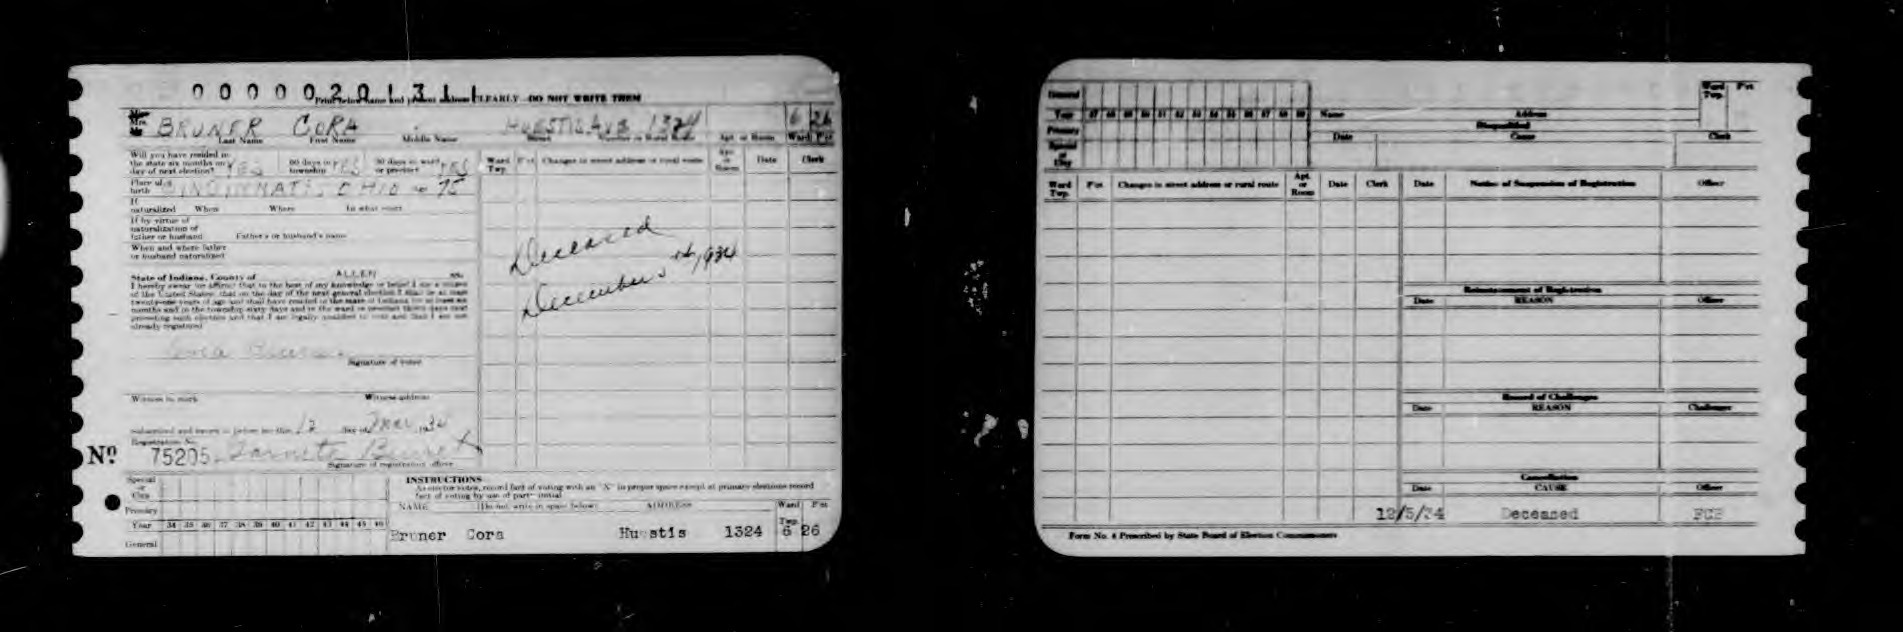 0 0 0 0 0 2 0 1 3 1 1
Print below name and present address CLEARLY—DO NOT WRITE THEM
Mrs. BRUNER CORA HUESTIS AVE 1324 6 26
Last Name First Name Middle Name Street Number or Rural Route Apt. or Room Ward Pct
Will you have resided in the state six months on day of next election? YES 60 days in township YES 30 days in ward or precinct YES
Place of birth CINCINNATI OHIO 75
If naturalized When Where In what court
If by virtue of naturalization of father or husband Father's or husband's name
When and where father or husband naturalized
State of Indiana, County of ALLEN ss:
I hereby swear (or affirm) that to the best of my knowledge or belief I am a citizen
of the United States; that on the day of the next general election I shall be at least
twenty-one years of age and shall have resided in the state of Indiana for at least six
months and in the township sixty days and in the ward or precinct thirty days next
preceding such election and that I am legally qualified to vote and that I am not
already registered
Cora Bruner
Signature of voter
Witness to mark Witness address
Subscribed and sworn to before me this 12 day of Mar 1934
Registration No.
Nº 75205
Signature of registration officer
Ward Twp. Pct Changes in street address or rural route Apt. or Room Date Clerk
Deceased
December 1934
Special or City
Primary
Year 34 35 36 37 38 39 40 41 42 43 44 45 46
General
INSTRUCTIONS
As elector votes, record fact of voting with an "X" in proper space except at primary elections record
fact of voting by use of party initial
NAME (Do not write in space below) ADDRESS Ward Twp. Pct
Bruner Cora Huestis 1324 6 26
General
Year 47 48 49 50 51 52 53 54 55 56 57 58 59
Primary
Special or City
Name Address Ward Twp. Pct
Disqualified
Date Cause Clerk
Ward Twp. Pct Changes in street address or rural route Apt. or Room Date Clerk
Date Notice of Suspension of Registration Officer
Reinstatement of Registration
Date REASON Officer
Record of Challenges
Date REASON Challenger
Cancellation
Date CAUSE Officer
12/5/34 Deceased
Form No. 4 Prescribed by State Board of Election Commissioners